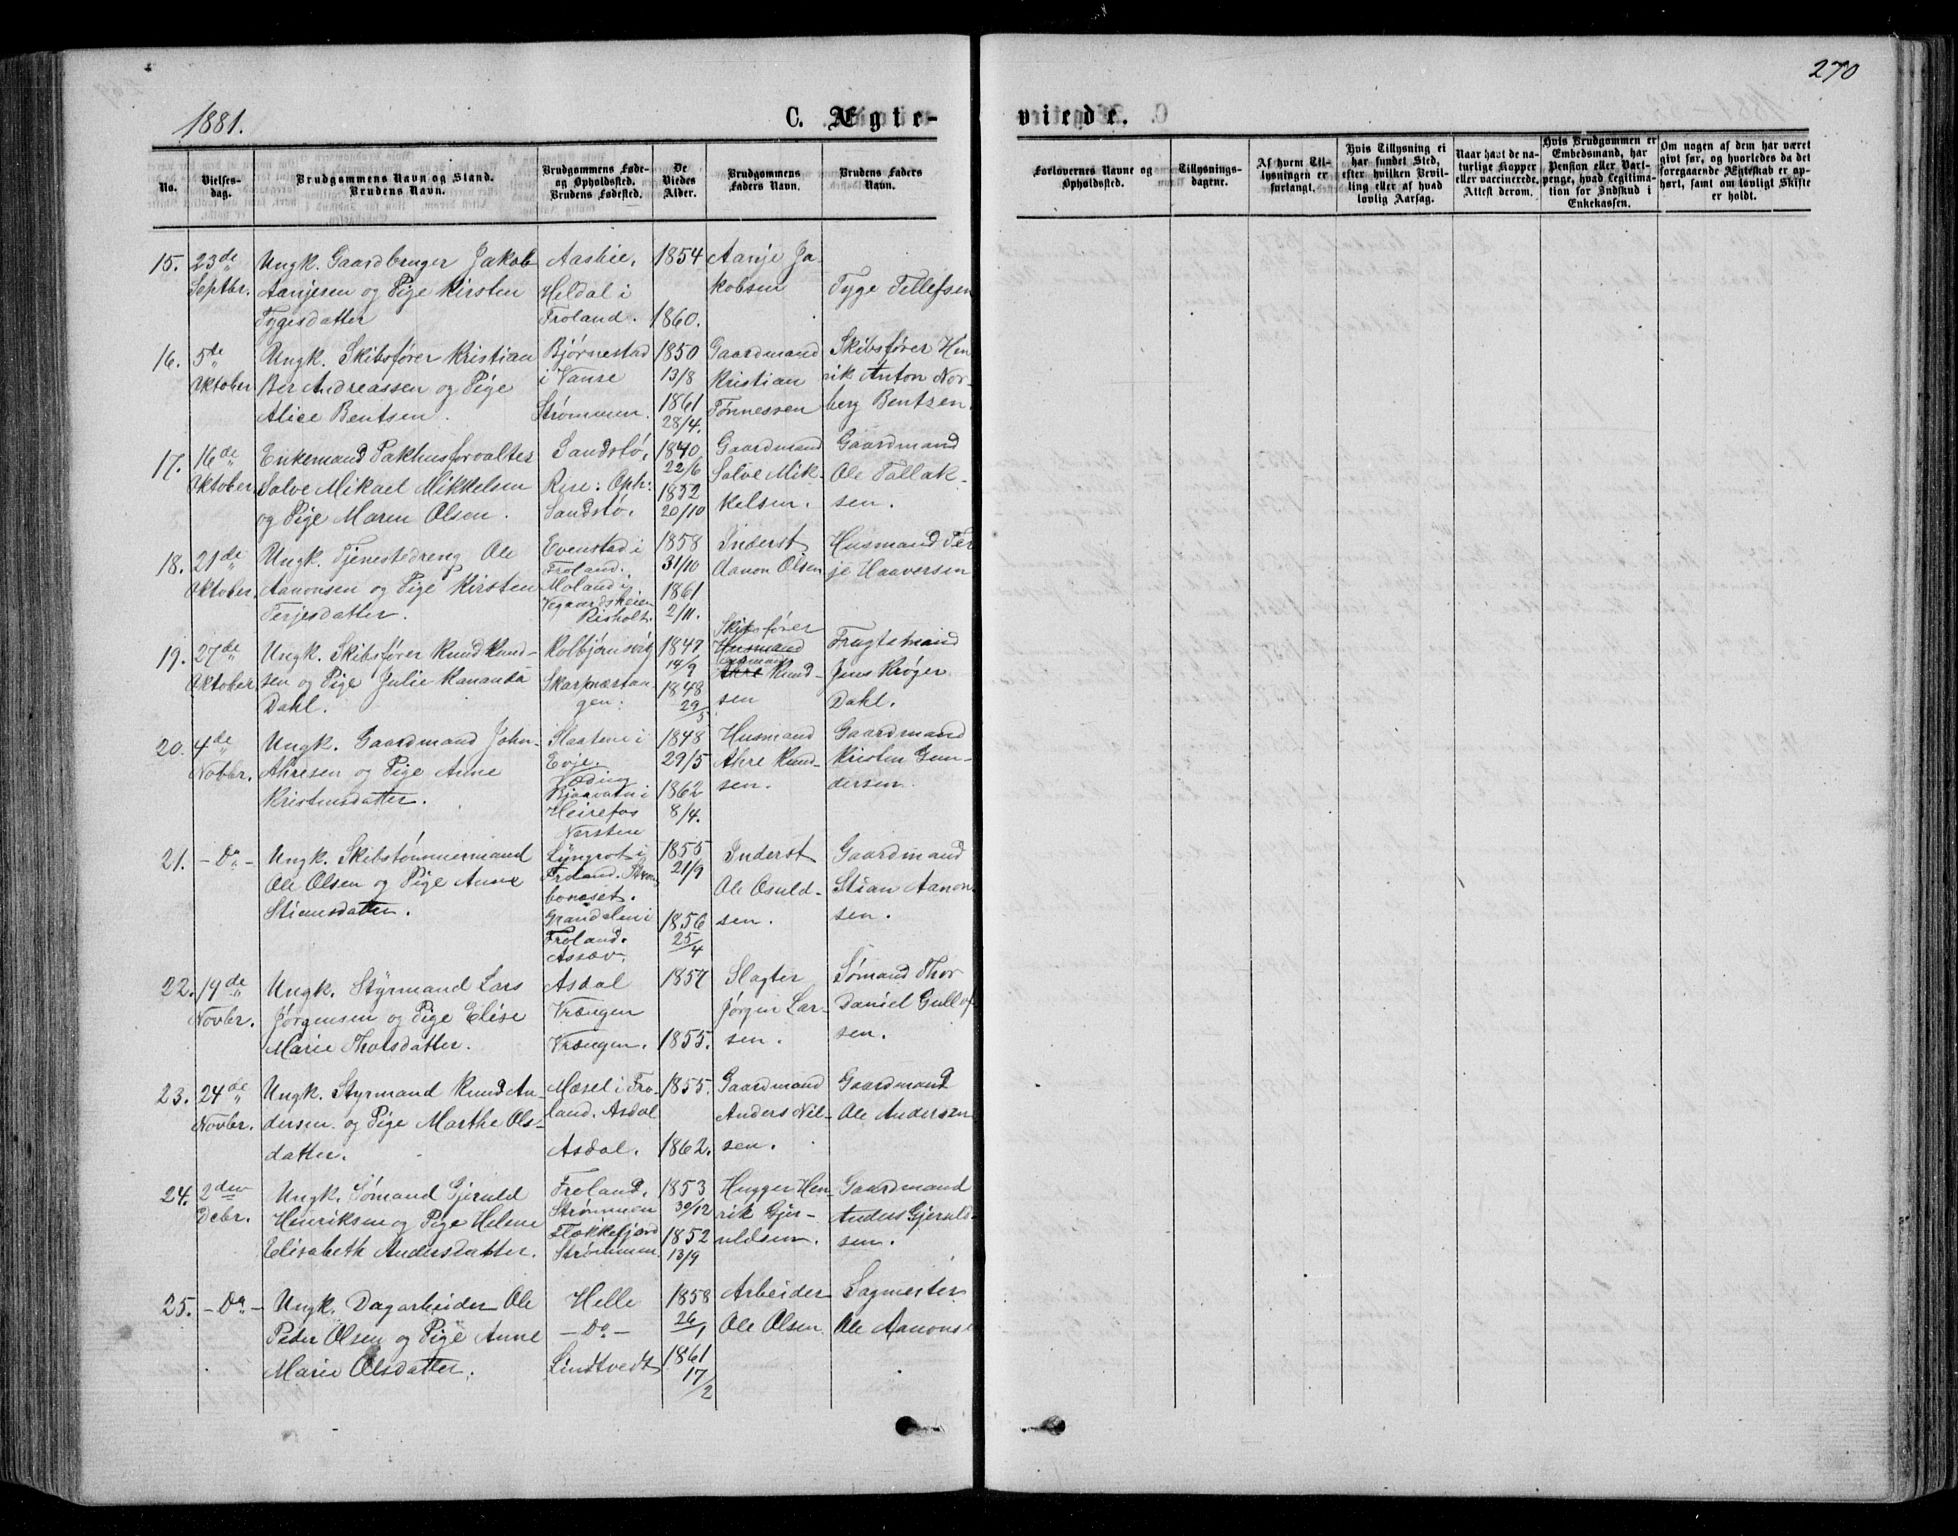 270
1881.
C. Ægte-
viede.
No.
Vielses-
dag.
Brudgommens Navn og Stand.
Brudens Navn.
Brudgommens Føde-
og Opholdssted.
Brudens Fødested.
De
Viedes
Alder.
Brudgommens
Faders Navn.
Brudens Faders
Navn.
Forlovernes Navne og
Opholdssted.
Tillysnings-
dagene.
Af hvem Til-
lysningen er
forlangt.
Hvis Tillysning ei
har fundet Sted,
efter hvilken Bevil-
ling eller af hvad
lovlig Aarsag.
Naar havt de na-
turlige Kopper
eller vaccinerede.
Attest derom.
Hvis Brudgommen er
Embedsmand, har
Pension eller Vart-
penge, hvad Legitima-
tion for Indskud i
Enkekassen.
Om nogen af dem har været
givt før, og hvorledes da det
foregaaende Ægteskab er op-
hørt, samt om lovligt Skifte
er holdt.
15.
23de
Septbr.
Ungk. Gaardbruger Jakob
Aanjesen og Pige Kirsten
Tygesdatter
Aasbie,
Heldal i
Froland.
1854
1860.
Aanje Ja-
kobsen
Tyge Tellefsen
16.
5te
Oktober
Ungk. Skibsfører Kristian
Ber Andreassen og Pige
Alice Bentsen.
Bjørnestad
i Vanse
Strømmen.
1850
13/8
1861
28/4.
Gaardmand
Kristian
Tønnessen
Skibsfører Hen
rik Anton Nor-
berg Bentsen.
17.
16de
Oktober
Enkemand Pakhusforvalter
Salve Mikael Mikkelsen
og Pige Maren Olsen.
Sandstø,
Rise: Oph:
Sandstø,
1840
22/6
1852
20/10
Gaardmand
Salve Mik-
kelsen.
Gaardmand
Ole Tallak-
sen.
18.
21de
Oktober
Ungk. Tjenestedreng Ole
Aanonsen og Pige Kirsten
Terjesdatter.
Evenstad i
Froland.
Moland i
Vegaardsheien
Risholt.
1858
31/10
1861
2/11.
Inderst
Aanon Olsen
Husmand Ter
je Haaversen
19.
27de
Oktober
Ungk. Skibsfører Knud Knud-
sen og Pige Julie Kananda
Dahl.
Kolbjørnsvig
Skarpnæstan
gen.
1847
14/9
1848
29/5
Skibsfører
Husmand
Ahre Knud-
sen
Fragtemand
Jens Krøger
Dahl.
20.
4de
Novbr.
Ungk. Gaardmand John
Ahresen og Pige Anne
Kristensdatter.
Slaatene i
Evje.
Væding
Bjaavatn i
Heirefos
Nersten
1848
29/5
1862
8/4.
Husmand
Ahre Knud-
sen.
Gaardmand
Kristen Gun-
dersen.
21.
- Do -
Ungk. Skibstømmermand
Ole Olsen og Pige Anne
Stiansdatter.
Lyngrot i
Froland.
bonæset.
Grandalen i
Froland.
Assæv.
1855
21/9
1856
25/4
Inderst
Ole Osuld-
sen.
Gaardmand
Stian Aanon
sen.
22.
19de
Novbr.
Ungk. Styrmand Lars
Jørgensen og Pige Elise
Marie Thorsdatter.
Asdal
Vrængen
Vrængen.
1857
1855.
Slagter
Jørgen Lar-
sen.
Sømand Thor
Daniel Gullof
sen.
23.
24de
Novbr.
Ungk. Styrmand Knud An
dersen og Pige Marthe Ols-
datter.
Mæsel i Fro-
land. Asdal
Asdal.
1855.
1862.
Gaardmand
Anders Nil-
sen.
Gaardmand
Ole Andersen
24.
2den
Debr.
Ungk. Sømand Gjeruld
Henriksen og Pige Helene
Elisabeth Andersdatter.
Froland.
Strømmen
Flækkefjord
Strømmen
1853
30/12
1852
13/9
Hugger Hen-
rik Gjer-
uldsen.
Gaardmand
Anders Gjeruld-
sen.
25.
- Do -
Ungk. Dagarbeider Ole
Peder Olsen og Pige Anne
Marie Olsdatter.
Helle
- Do -
Lindtvedt
1858
26/1
1861
17/2
Arbeider
Ole Olsen
Sagmester
Ole Aanonse